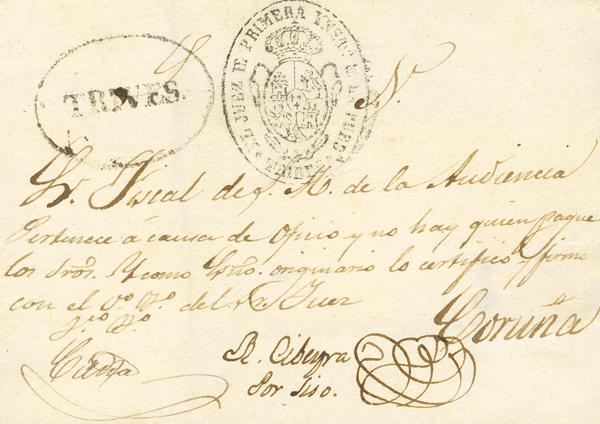 TRIVES.
EL JUEZ DE PRIMERA
N.
Sr. Fiscal de S. M. de la Audiencia
Pertenece á causa de Oficio y no hay quien pague
los dros. Y como Esño. originario lo certifico y firmo
con el Vº. Bº. del Sr. Juez
Vº Bº
Coruña
R. Cibeyra
Por Siso.